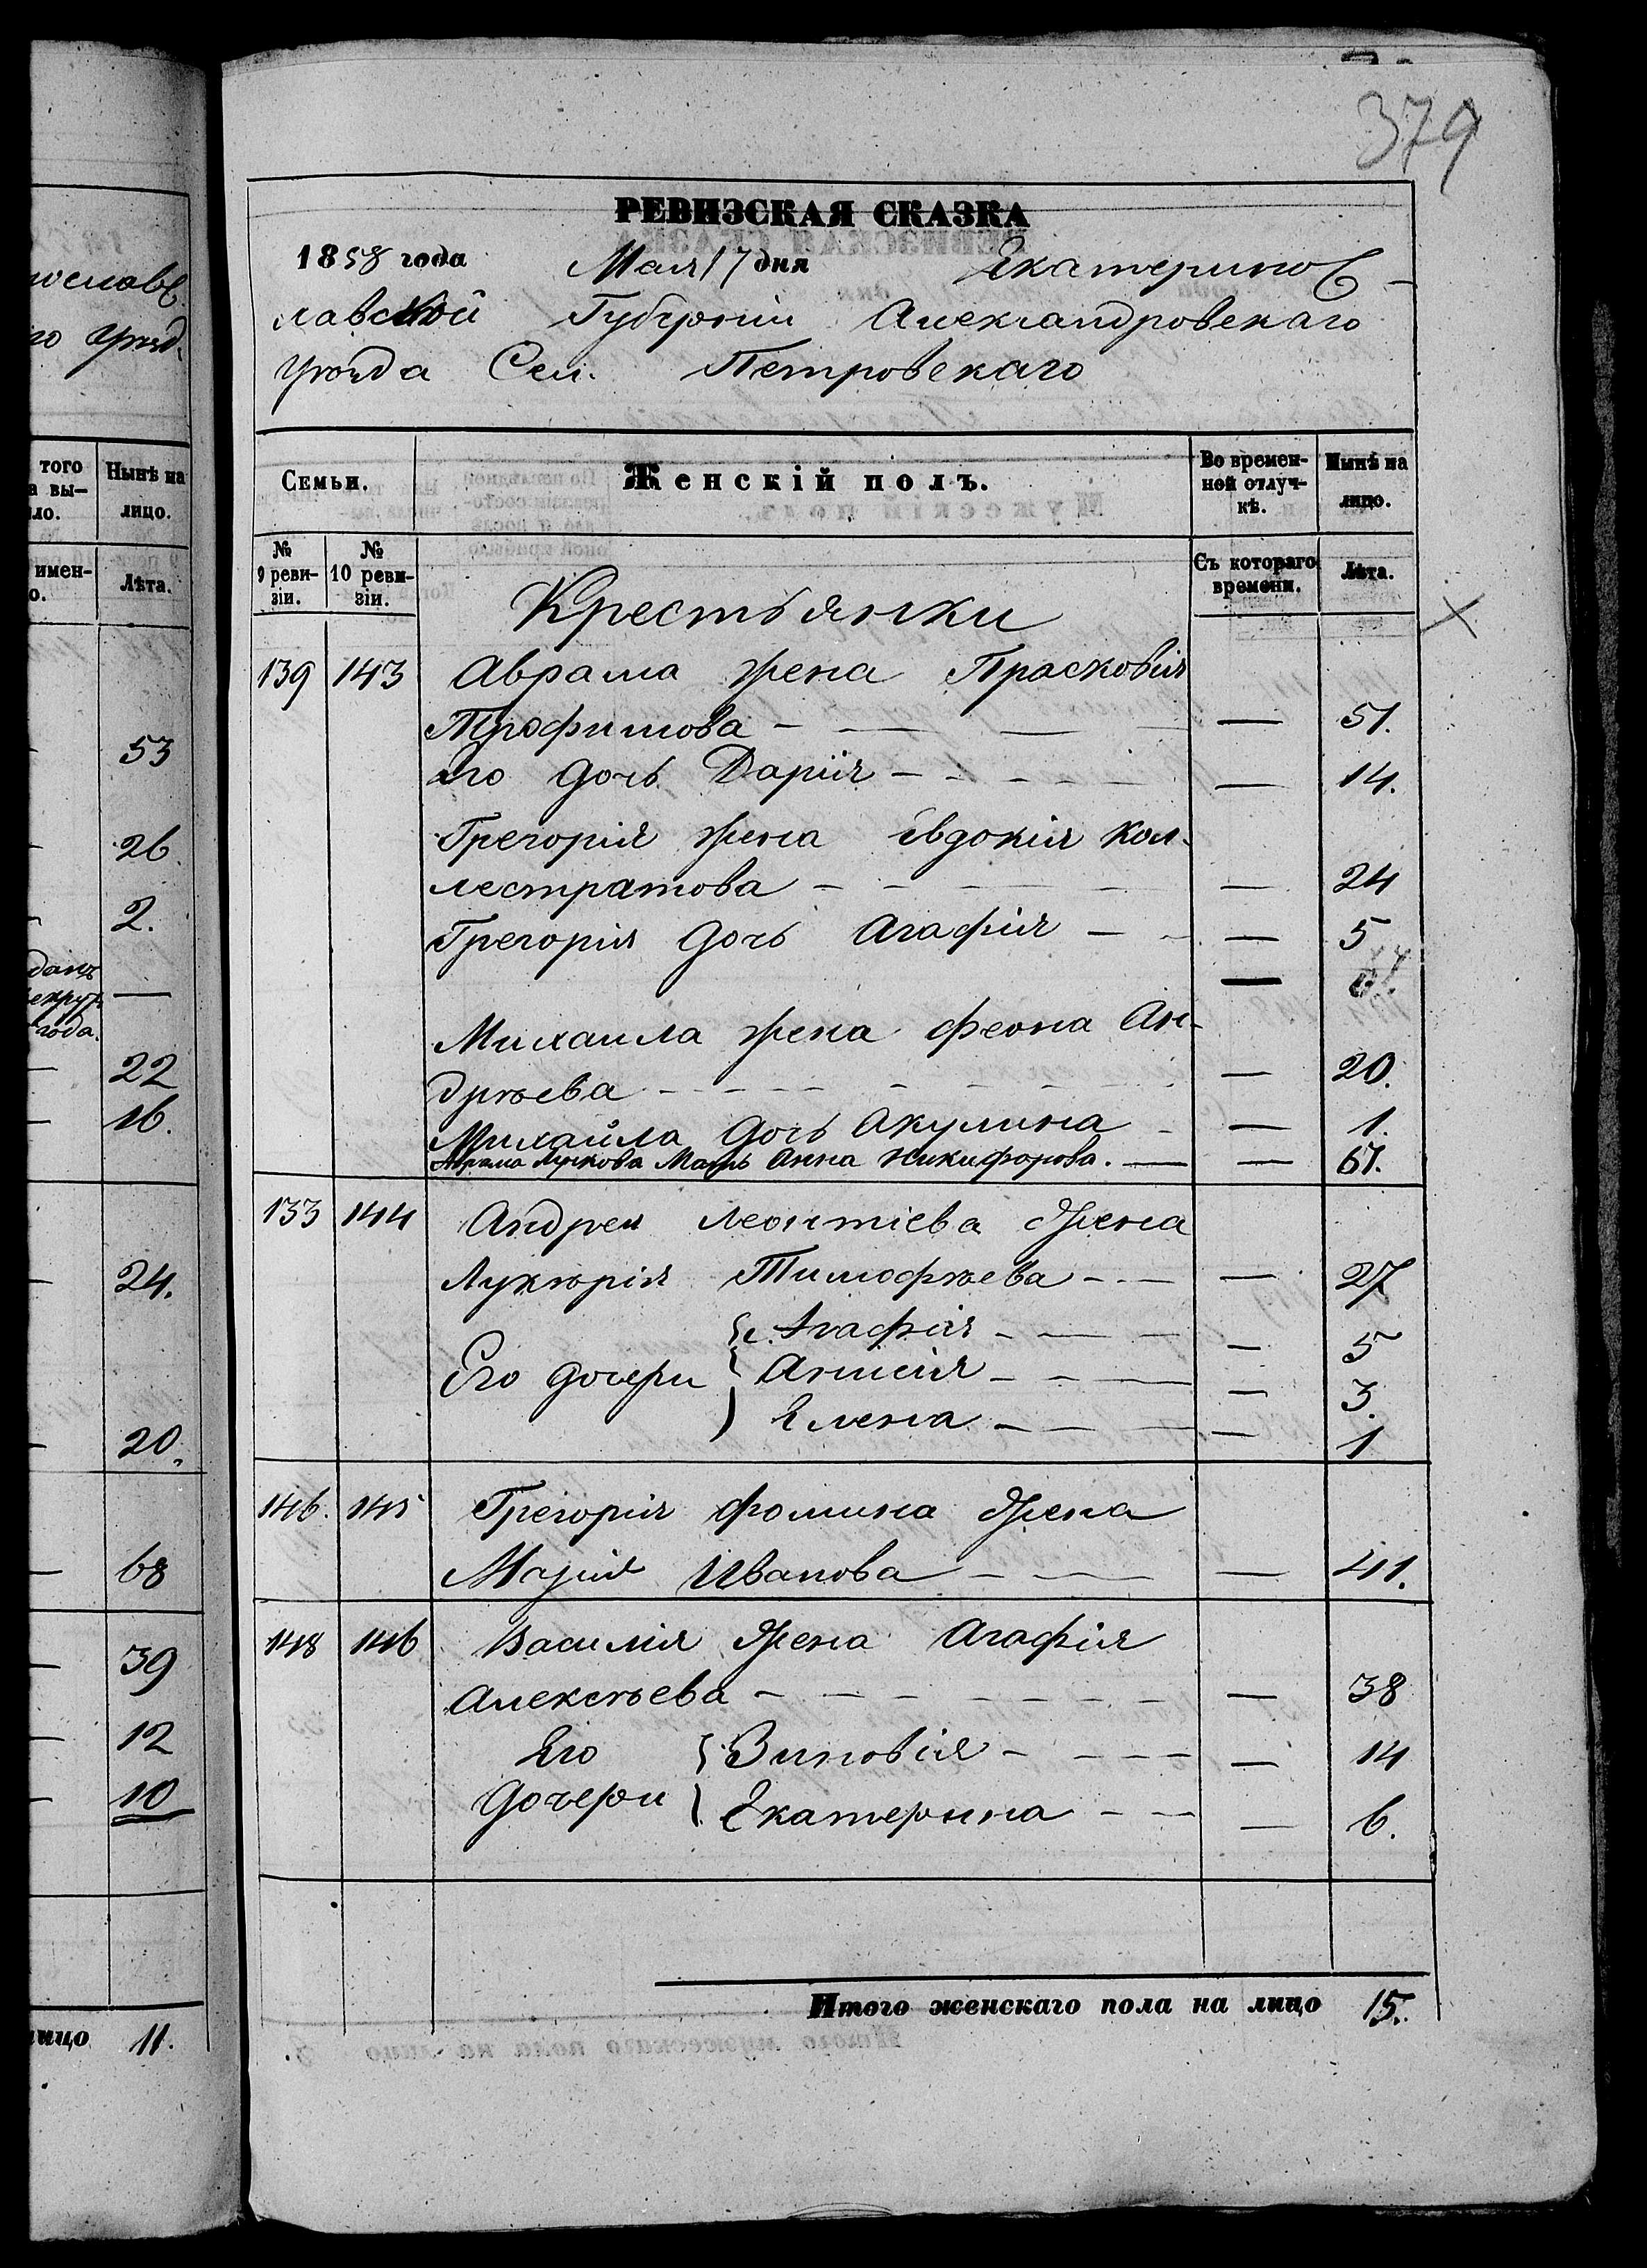 379
РЕВИЗСКАЯ СКАЗКА
1858 года Мая 17 дня Екатеринос-
лавской Губерніи Александровскаго
уѣзда Сел. Петровскаго
Семьи.
Женскій полъ.
Во времен-
ной отлуч-
кѣ.
Нынѣ на
лицо.
№
9 реви-
зіи.
№
10 реви-
зіи.
Съ котораго
времени.
Лѣта.
Крестьянки
139 143 Аврама жена Прасковія
Трофимова — — 51.
Его дочь Дарія — — 14.
Грегорія жена Евдокія Кал-
лестратова — — 24
Грегорія дочь Агафія — — 5
Михаила жена Феона Ан-
дрѣева — — 20.
Михайла дочь Акулина — — 1.
Аврама Мать Анна Никифорова. — — 67.
133 144 Андрея Леонтіева Жена
Лукѣрія Тимофѣева — — 27
Агафія — — 5
Его дочери Анисія — — 3.
Елена — — 1
146. 145 Грегорія Фомина Жена
Марія Иванова — — 41.
148 146 Василія Жена Агафія
Алексѣева — — 38
Его Зиновія — — 14
Дочери Екатерина — — 6.
Итого женскаго пола на лицо 15.
ослав
го уѣзд.
того
а вы-
ло.
Нынѣ на
лицо.
имен-
о.
Лѣта.
53
26.
2.
года.
22
16.
24.
20.
68
39
12
10
лицо 11.